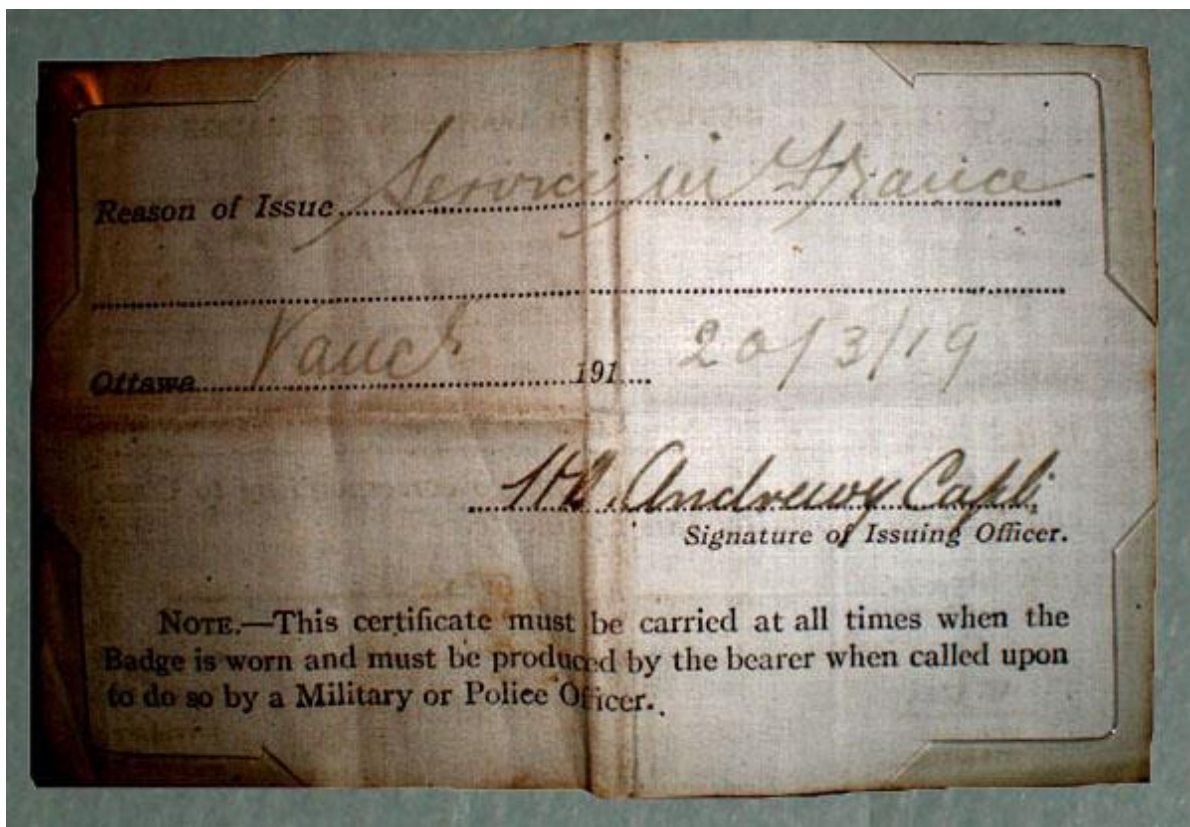 Reason of Issue Service in France
Ottawa Vancr 191... 20/3/19
Andrews Capt.
Signature of Issuing Officer.
NOTE.—This certificate must be carried at all times when the
Badge is worn and must be produced by the bearer when called upon
to do so by a Military or Police Officer.